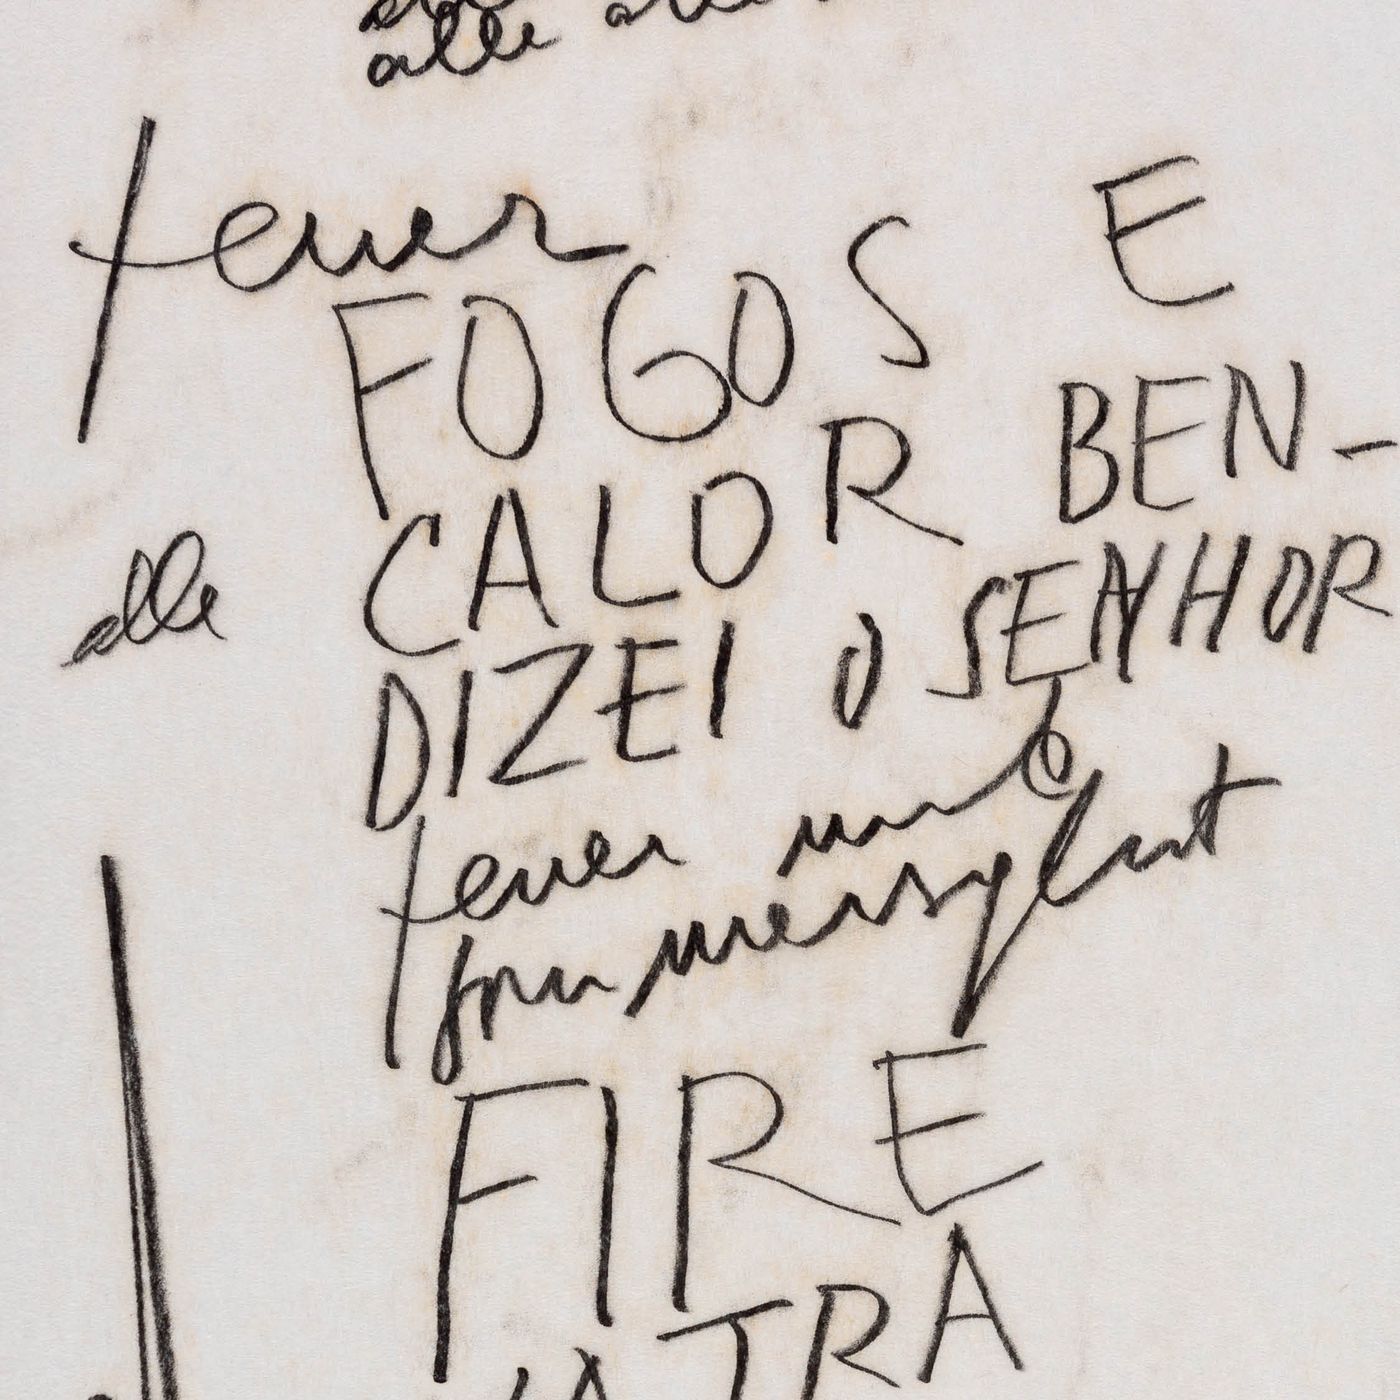 alle
feuer
FOGOS E
CALOR BEN-
alle DIZEI O SENHOR
feuer und
FIRE
TRA